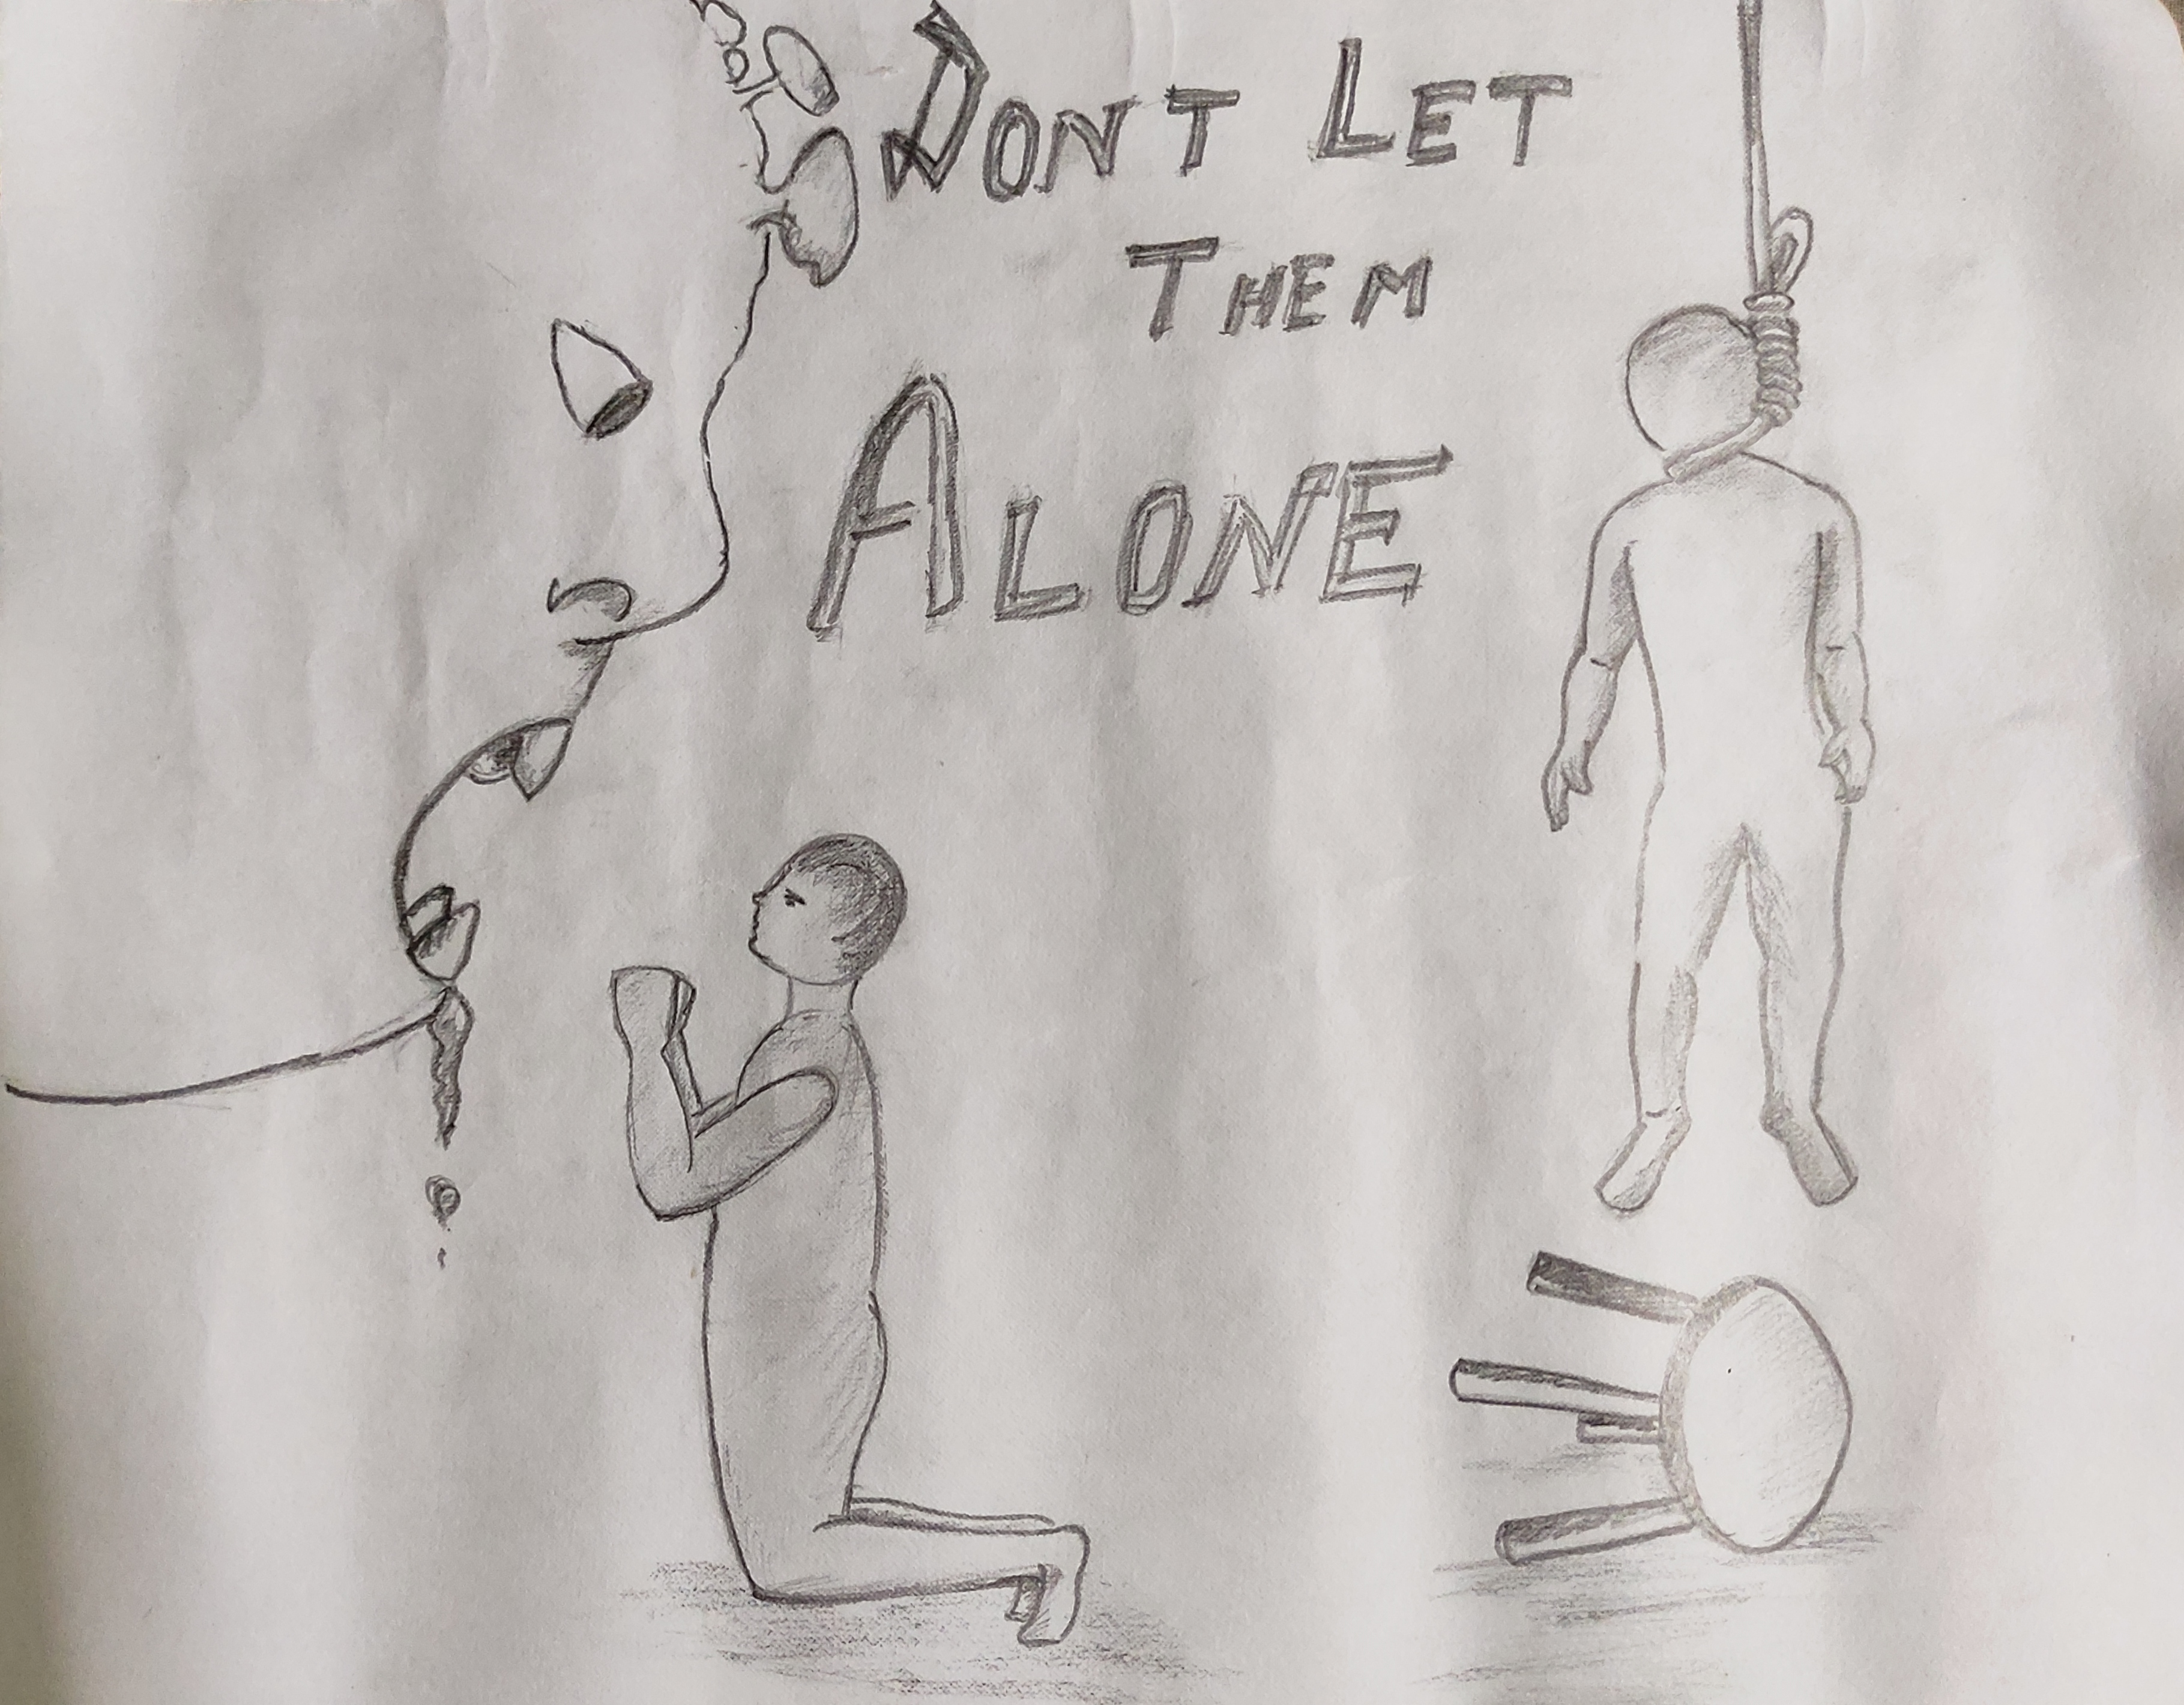 DONT LET
THEM
ALONE